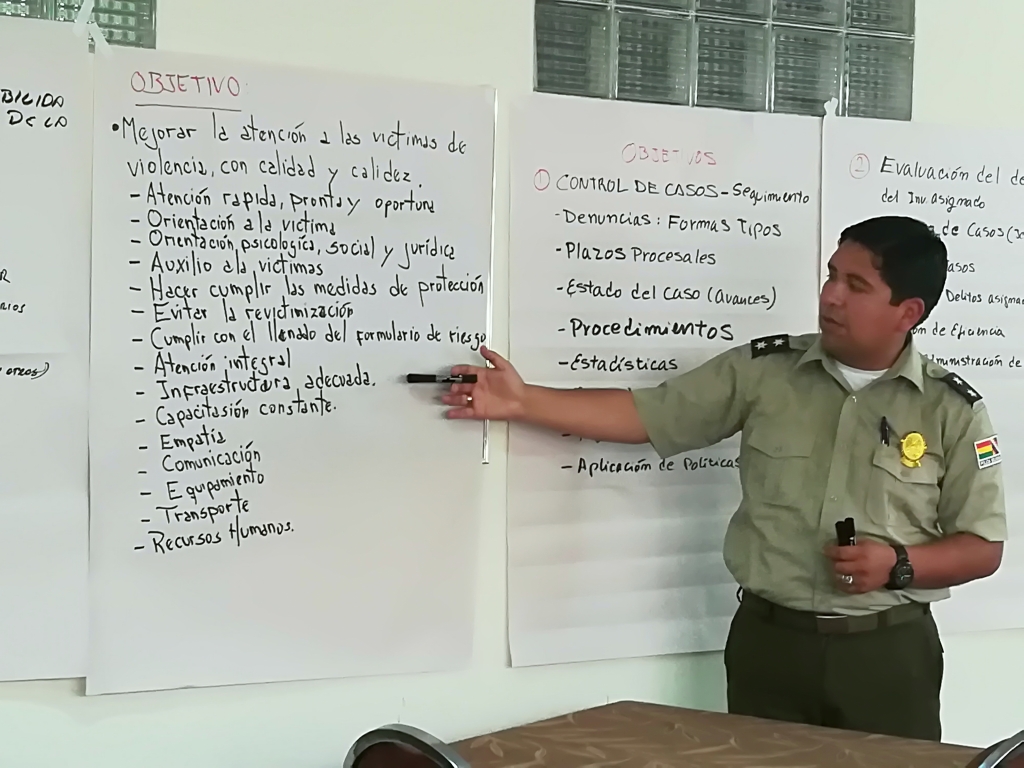 BILIDA
DE LA
R
RIOS
OBJETIVO:
• Mejorar la atención a las victimas de
violencia, con calidad y calidez.
- Atención rapida, pronta y oportuna
- Orientación a la victima
- Orientación, psicologica, social y jurídica
- Auxilio a la victimas
- Hacer cumplir las medidas de protección
- Evitar la revictimización
- Cumplir con el llenado del formulario de riesgo
- Atención integral
- Infraestructura adecuada.
- Capacitasión constante.
- Empatía
- Comunicación
- Equipamiento
- Transporte
- Recursos Humanos.
OBJETIVOS
① CONTROL DE CASOS - Seguimiento
- Denuncias: Formas Tipos
- Plazos Procesales
- Estado del Caso (Avances)
- Procedimientos
- Estadísticas
- Aplicación de Politicas
② Evaluación del de
del Inv. asignado
de Casos
asos
Delitos asigna
ón de Eficiencia
ministración de